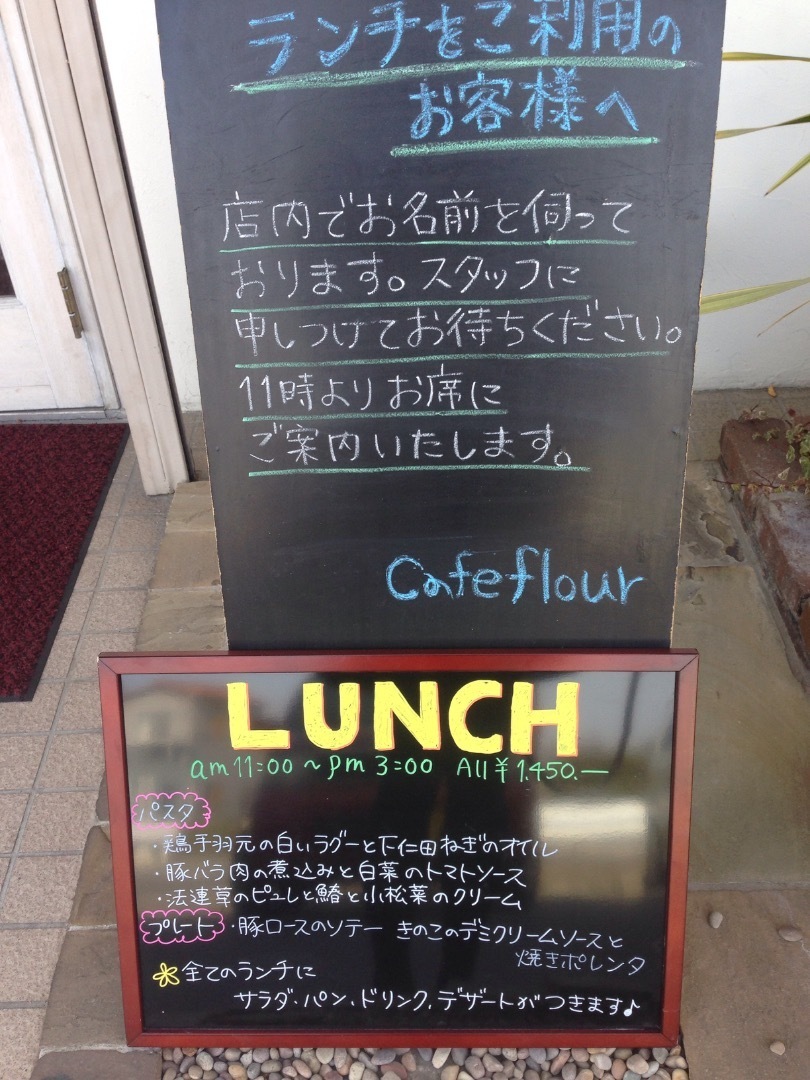 ランチをご利用の
お客様へ
店内でお名前を伺って
おります。スタッフに
申しつけてお待ちください。
11時よりお席に
ご案内いたします。
Cafeflour
LUNCH
am 11:00 〜 pm 3:00 All ¥1.450.—
パスタ
・鶏手羽元の白いラグーと下仁田ねぎのオイル
・豚バラ肉の煮込みと白菜のトマトソース
・法連草のピュレと鰆と小松菜のクリーム
プレート ・豚ロースのソテー きのこのデミクリームソースと
焼きポレンタ
全てのランチに
サラダ・パン・ドリンク,デザートがつきます♪